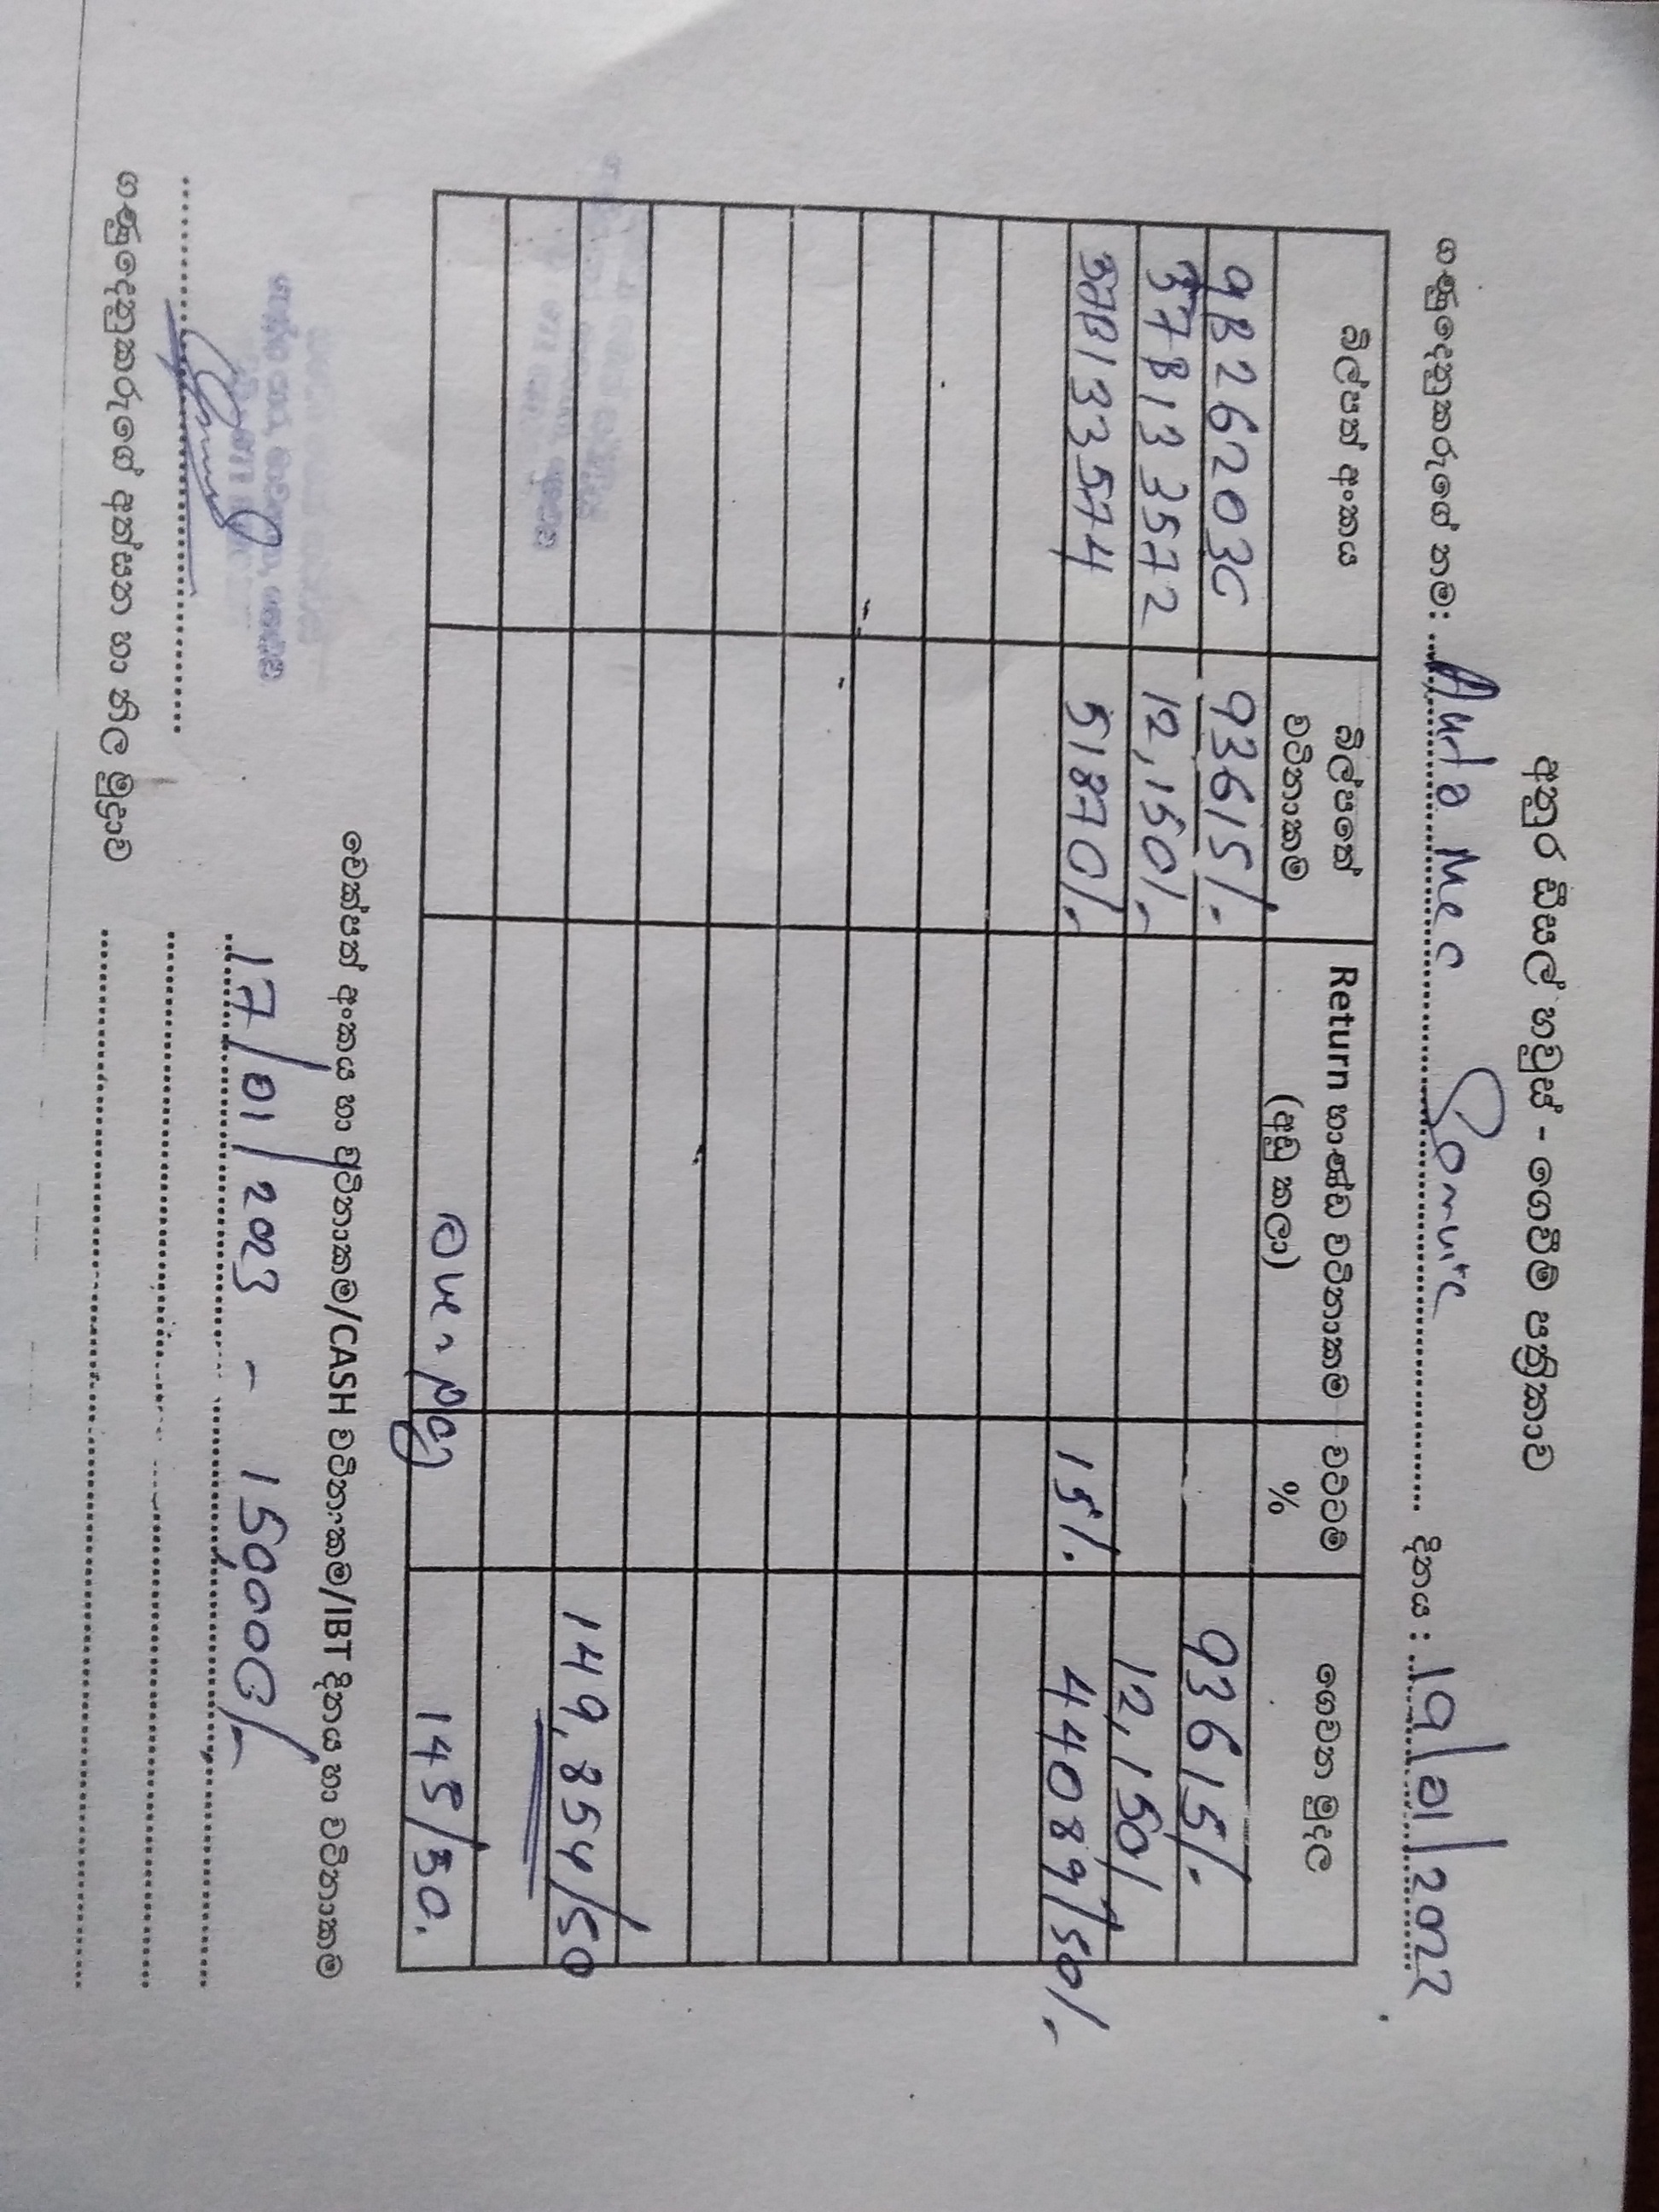 අනුර ඩීසල් හවුස් - ගෙවීම් පත්‍රිකාව
ගණුදෙනුකරුගේ නම: Auto Mec දිනය : 19/01/2022
බිල්පත් අංකය බිල්පතේ වටිනාකම Return භාණ්ඩ වටිනාකම (අඩු කලා) වට්ටම් % ගෙවන මුදල
9B262030 93615/- 93615/-
37B133572 12,150/- 12,150/
37B133574 51870/- 15%. 44089/50/-
149,854/50
Over pay 145/50.
චෙක්පත් අංකය හා වටිනාකම/CASH වටිනාකම/IBT දිනය හා වටිනාකම
17/01/2023 - 150,000/-
ගණුදෙනුකරුගේ අත්සන හා නිල මුද්‍රාව